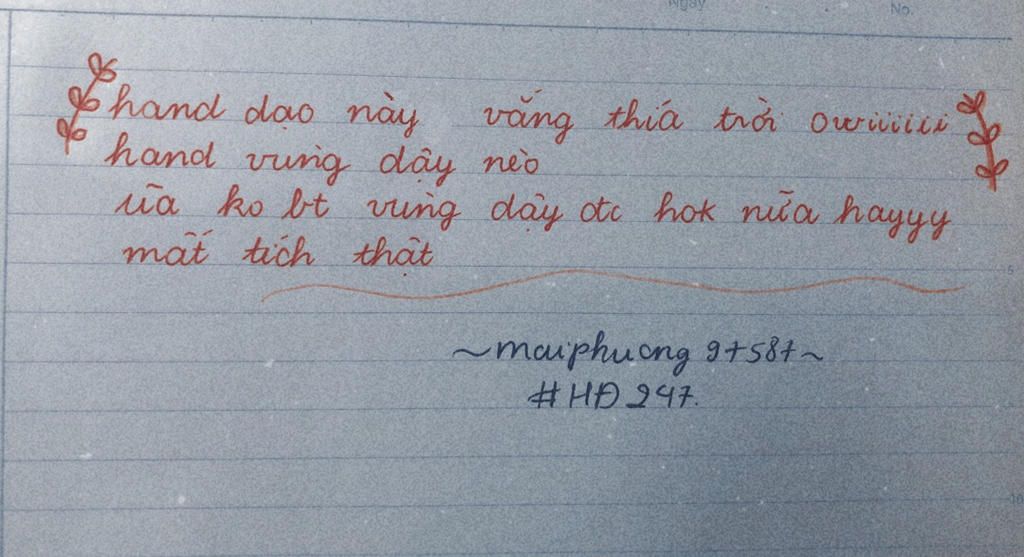 Ngày No.
hand dạo này vắng thíá trời owiiiiii
hand vùng dậy nèo
ũa ko bt vùng dậy đc hok nữa hayyy
mất tích thật
5
~maiphuong 97587~
#HĐ 247.
10